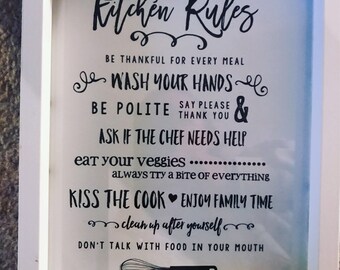 Kitchen Rules
BE THANKFUL FOR EVERY MEAL
WASH YOUR HANDS
BE POLITE SAY PLEASE & THANK YOU
ASK IF THE CHEF NEEDS HELP
eat your veggies
ALWAYS TRY A BITE OF EVERYTHING
KISS THE COOK ENJOY FAMILY TIME
clean up after yourself
DON'T TALK WITH FOOD IN YOUR MOUTH